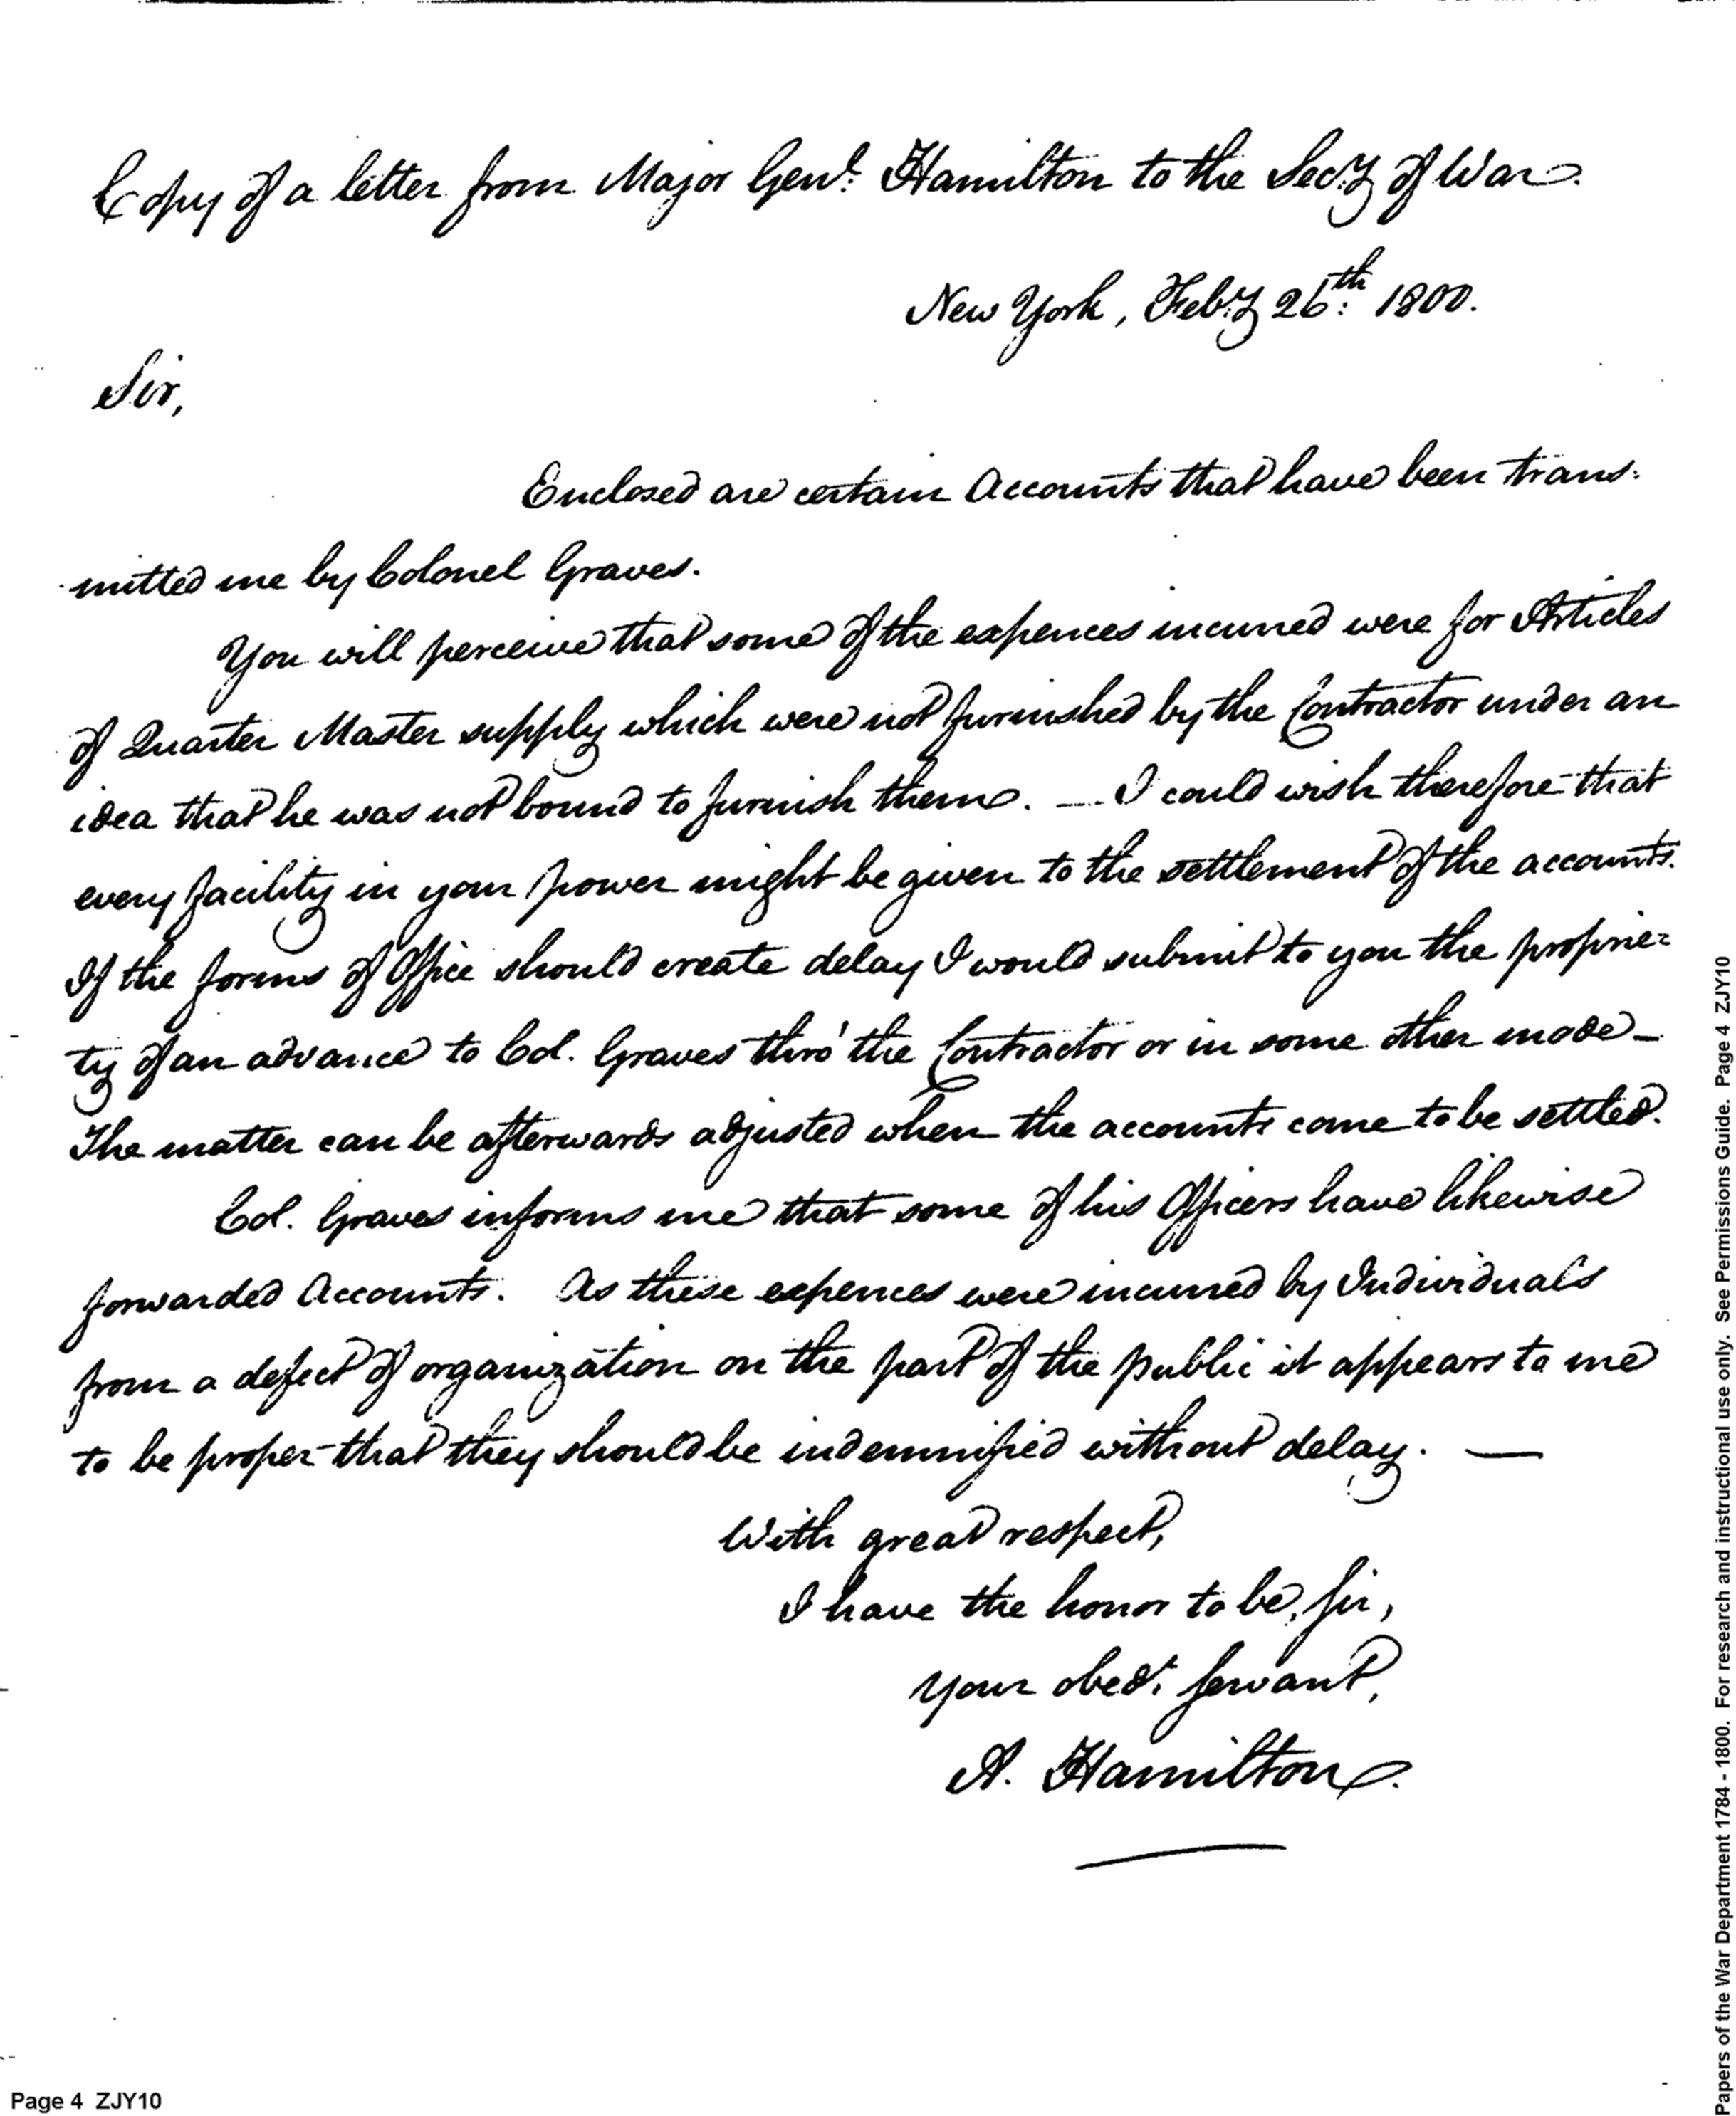 Copy of a letter from Major Genl. Hamilton to the Secy. of War.
New York, Feby. 26th. 1800.
Sir,
Enclosed are certain Accounts that have been trans-
mitted me by Colonel Graves.
You will perceive that some of the expences incurred were for Articles
of Quarter Master supply which were not furnished by the Contractor under an
idea that he was not bound to furnish them. — I could wish therefore that
every facility in your power might be given to the settlement of the accounts.
If the forms of Office should create delay I would submit to you the proprie=
ty of an advance to Col. Graves thro' the Contractor or in some other mode—
The matter can be afterwards adjusted when the accounts come to be settled.
Col. Graves informs me that some of his Officers have likewise
forwarded Accounts. As these expences were incurred by Individuals
from a defect of organization on the part of the public it appears to me
to be proper that they should be indemnified without delay. —
With great respect,
I have the honor to be, Sir,
Your obedt. Servant,
A. Hamilton.
Page 4 ZJY10
Papers of the War Department 1784 - 1800. For research and instructional use only. See Permissions Guide. Page 4 ZJY10